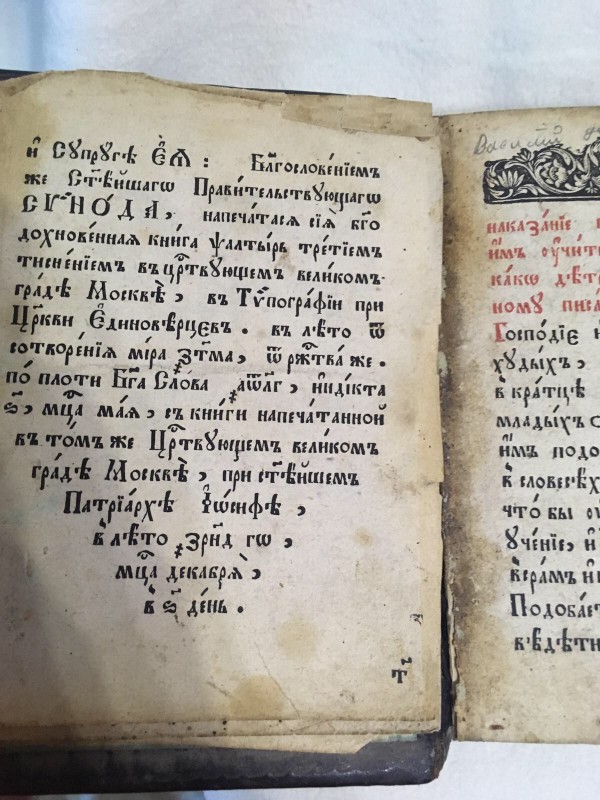 и҆ Сꙋпрꙋгѣ Є҆Ѧ҆ : Бл҃гословенїемъ
же Ст҃ѣйшагѡ Правительствꙋющагѡ
СѴНОДА, напечатасѧ сїѧ̀ бг҃о
дохновенная книга ѱалтырь третїемъ
тисненїемъ въ црⷭ҇твꙋющемъ великомъ
градѣ Москвѣ, въ Тѷпографїи при
Цр҃кви Єдиновѣрцєвъ. въ лѣто ѿ
сотворенїѧ мїра ҂зт҃ма, ѿ ржⷭ҇тва же.
по́ плоти Бг҃а Сло́ва ҂аѿл҃г, и҆ндїкта
ѕ҃, мцⷭ҇а маѧ, съ книги напечатанной
въ то́мъ же Црⷭ҇твꙋющемъ великомъ
градѣ Москвѣ, при ст҃ѣйшемъ
Патрїархѣ І҆ѡсифѣ,
в лѣто ҂зрн҃д гѡ,
мцⷭ҇а декабрѧ,
в ѕ҃ де́нь.
наказа́нїе
и҆́мъ ѹ҆чит
ка́кѡ дѣт
ному писа
Господїе
хꙋдыхъ,
в кра́тцѣ
младыхъ
и҆́мъ подо
в словесѣх
что́ бы
ꙋче́нїе, и҆
вѣрамъ и҆
Подобает
вѣдѣти